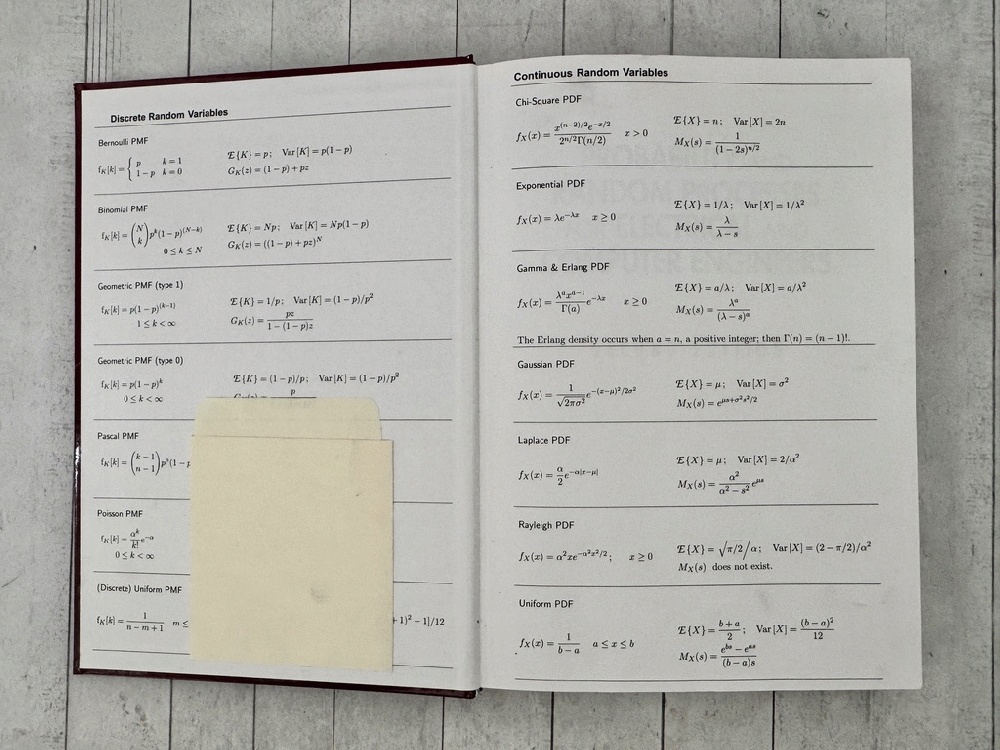 Discrete Random Variables
Bernoulli PMF
f_K[k] = { p k = 1
1 − p k = 0
E{K} = p; Var[K] = p(1−p)
G_K(z) = (1−p) + pz
Binomial PMF
f_K[k] = (N k) p^k (1−p)^(N−k)
0 ≤ k ≤ N
E{K} = Np; Var[K] = Np(1−p)
G_K(z) = ((1−p) + pz)^N
Geometric PMF (type 1)
f_K[k] = p(1−p)^(k−1)
1 ≤ k < ∞
E{K} = 1/p; Var[K] = (1−p)/p^2
G_K(z) = pz / (1 − (1−p)z)
Geometric PMF (type 0)
f_K[k] = p(1−p)^k
0 ≤ k < ∞
E{K} = (1−p)/p; Var[K] = (1−p)/p^2
p
Pascal PMF
f_K[k] = (k−1 n−1) p^n (1−p
Poisson PMF
f_K[k] = α^k / k! e^−α
0 ≤ k < ∞
(Discrete) Uniform PMF
f_K[k] = 1 / (n − m + 1) m ≤
+1)^2 − 1]/12
Continuous Random Variables
Chi-Square PDF
f_X(x) = x^((n−2)/2) e^(−x/2) / (2^(n/2) Γ(n/2)) x > 0
E{X} = n; Var[X] = 2n
M_X(s) = 1 / (1−2s)^(n/2)
Exponential PDF
f_X(x) = λe^(−λx) x ≥ 0
E{X} = 1/λ; Var[X] = 1/λ^2
M_X(s) = λ / (λ − s)
Gamma & Erlang PDF
f_X(x) = λ^a x^(a−1) / Γ(a) e^(−λx) x ≥ 0
E{X} = a/λ; Var[X] = a/λ^2
M_X(s) = λ^a / (λ − s)^a
The Erlang density occurs when a = n, a positive integer; then Γ(n) = (n − 1)!.
Gaussian PDF
f_X(x) = 1 / √(2πσ^2) e^(−(x−μ)^2/2σ^2)
E{X} = μ; Var[X] = σ^2
M_X(s) = e^(μs+σ^2s^2/2)
Laplace PDF
f_X(x) = α/2 e^(−α|x−μ|)
E{X} = μ; Var[X] = 2/α^2
M_X(s) = α^2 / (α^2 − s^2) e^(μs)
Rayleigh PDF
f_X(x) = α^2 x e^(−α^2x^2/2); x ≥ 0
E{X} = √(π/2)/α; Var[X] = (2 − π/2)/α^2
M_X(s) does not exist.
Uniform PDF
f_X(x) = 1 / (b − a) a ≤ x ≤ b
E{X} = (b + a)/2; Var[X] = (b − a)^2/12
M_X(s) = (e^(bs) − e^(as)) / ((b − a)s)